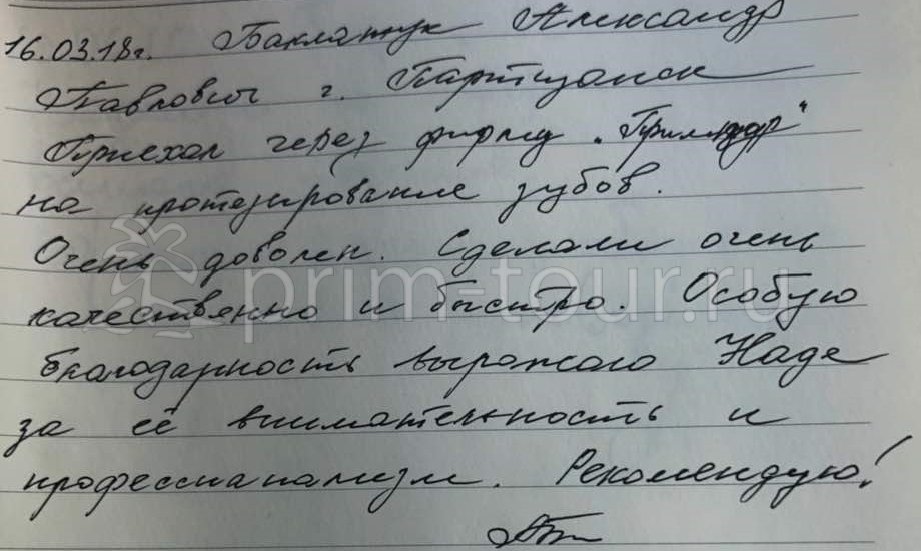 16.03.18г. Баклатюк Александр
Павлович г. Партизанск
Приехал через фирму „Примтур“
на протезирование зубов.
Очень доволен. Сделали очень
prim-tour.ru
качественно и быстро. Особую
благодарность выражаю Наде
за её внимательность и
профессианализм. Рекомендую!